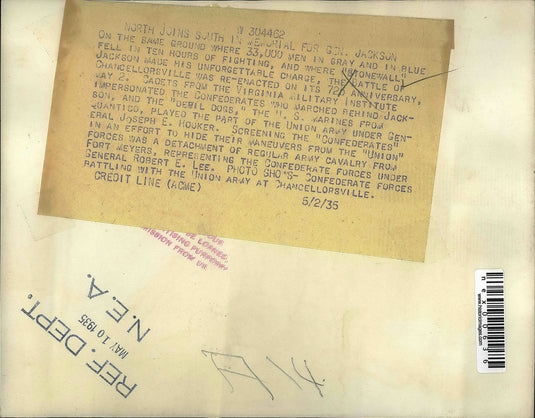 W 304462
NORTH JOINS SOUTH IN MEMORIAL FOR GEN. JACKSON
ON THE SAME GROUND WHERE 33,000 MEN IN GRAY AND IN BLUE
FELL IN TEN HOURS OF FIGHTING, AND WHERE "STONEWALL"
JACKSON MADE HIS UNFORGETTABLE CHARGE, THE BATTLE OF
CHANCELLORSVILLE WAS RE-ENACTED ON ITS 72D ANNIVERSARY,
MAY 2. CADETS FROM THE VIRGINIA MILITARY INSTITUTE
IMPERSONATED THE CONFEDERATES WHO MARCHED BEHIND JACK-
SON, AND THE "DEVIL DOGS," THE U. S. MARINES FROM
QUANTICO, PLAYED THE PART OF THE UNION ARMY UNDER GEN-
ERAL JOSEPH E. HOOKER. SCREENING THE "CONFEDERATES"
IN AN EFFORT TO HIDE THEIR MANEUVERS FROM THE "UNION"
FORCES WAS A DETACHMENT OF REGULAR ARMY CAVALRY FROM
FORT MEYERS, REPRESENTING THE CONFEDERATE FORCES UNDER
GENERAL ROBERT E. LEE. PHOTO SHO"S- CONFEDERATE FORCES
BATTLING WITH THE UNION ARMY AT CHANCELLORSVILLE.
CREDIT LINE (ACME) 5/2/35
PURPOSES
MISSION FROM
REF. DEPT.
MAY 10 1935
N.E.A.
A 14
nex00636
www.historicimages.com